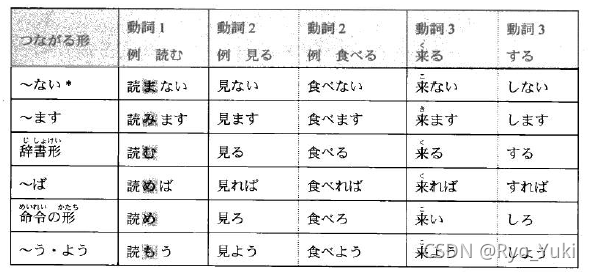 つながる形
動詞1
例 読む
動詞2
例 見る
動詞2
例 食べる
動詞3
く
来る
動詞3
する
~ない* 読まない 見ない 食べない 来ない しない
こ
~ます 読みます 見ます 食べます 来ます します
き
じしょけい
辞書形 読む 見る 食べる 来る する
く
~ば 読めば 見れば 食べれば 来れば すれば
く
めいれい かたち
命令の形 読め 見ろ 食べろ 来い しろ
こ
~う・よう 読もう 見よう 食べよう 来よう しよう
CSDN @Ryo_Yuki